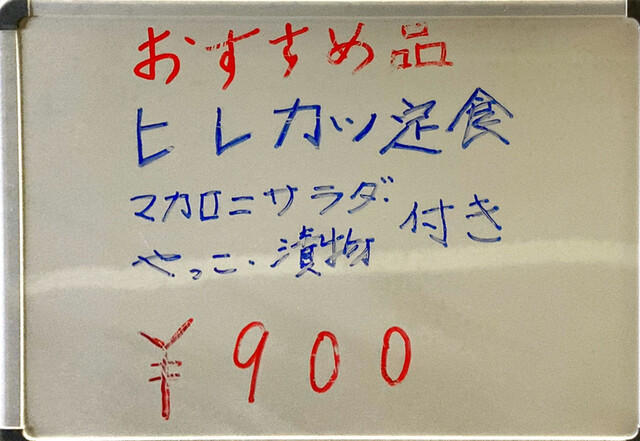 おすすめ品
ヒレカツ定食
マカロニサラダ・
やっこ・漬物 付き
¥900